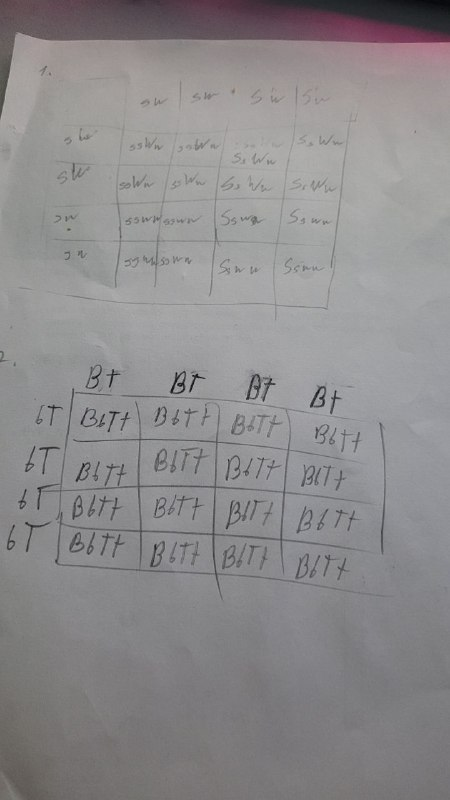 1.
sw sw Sw Sw
sW ssWw ssWw SsWw SsWw
sW ssWw ssWw SsWw SsWw
sw ssww ssww Ssww Ssww
sw ssww ssww Ssww Ssww
2.
Bt Bt Bt Bt
bT BbTt BbTt BbTt BbTt
bT BbTt BbTt BbTt BbTt
bT BbTt BbTt BbTt BbTt
bT BbTt BbTt BbTt BbTt